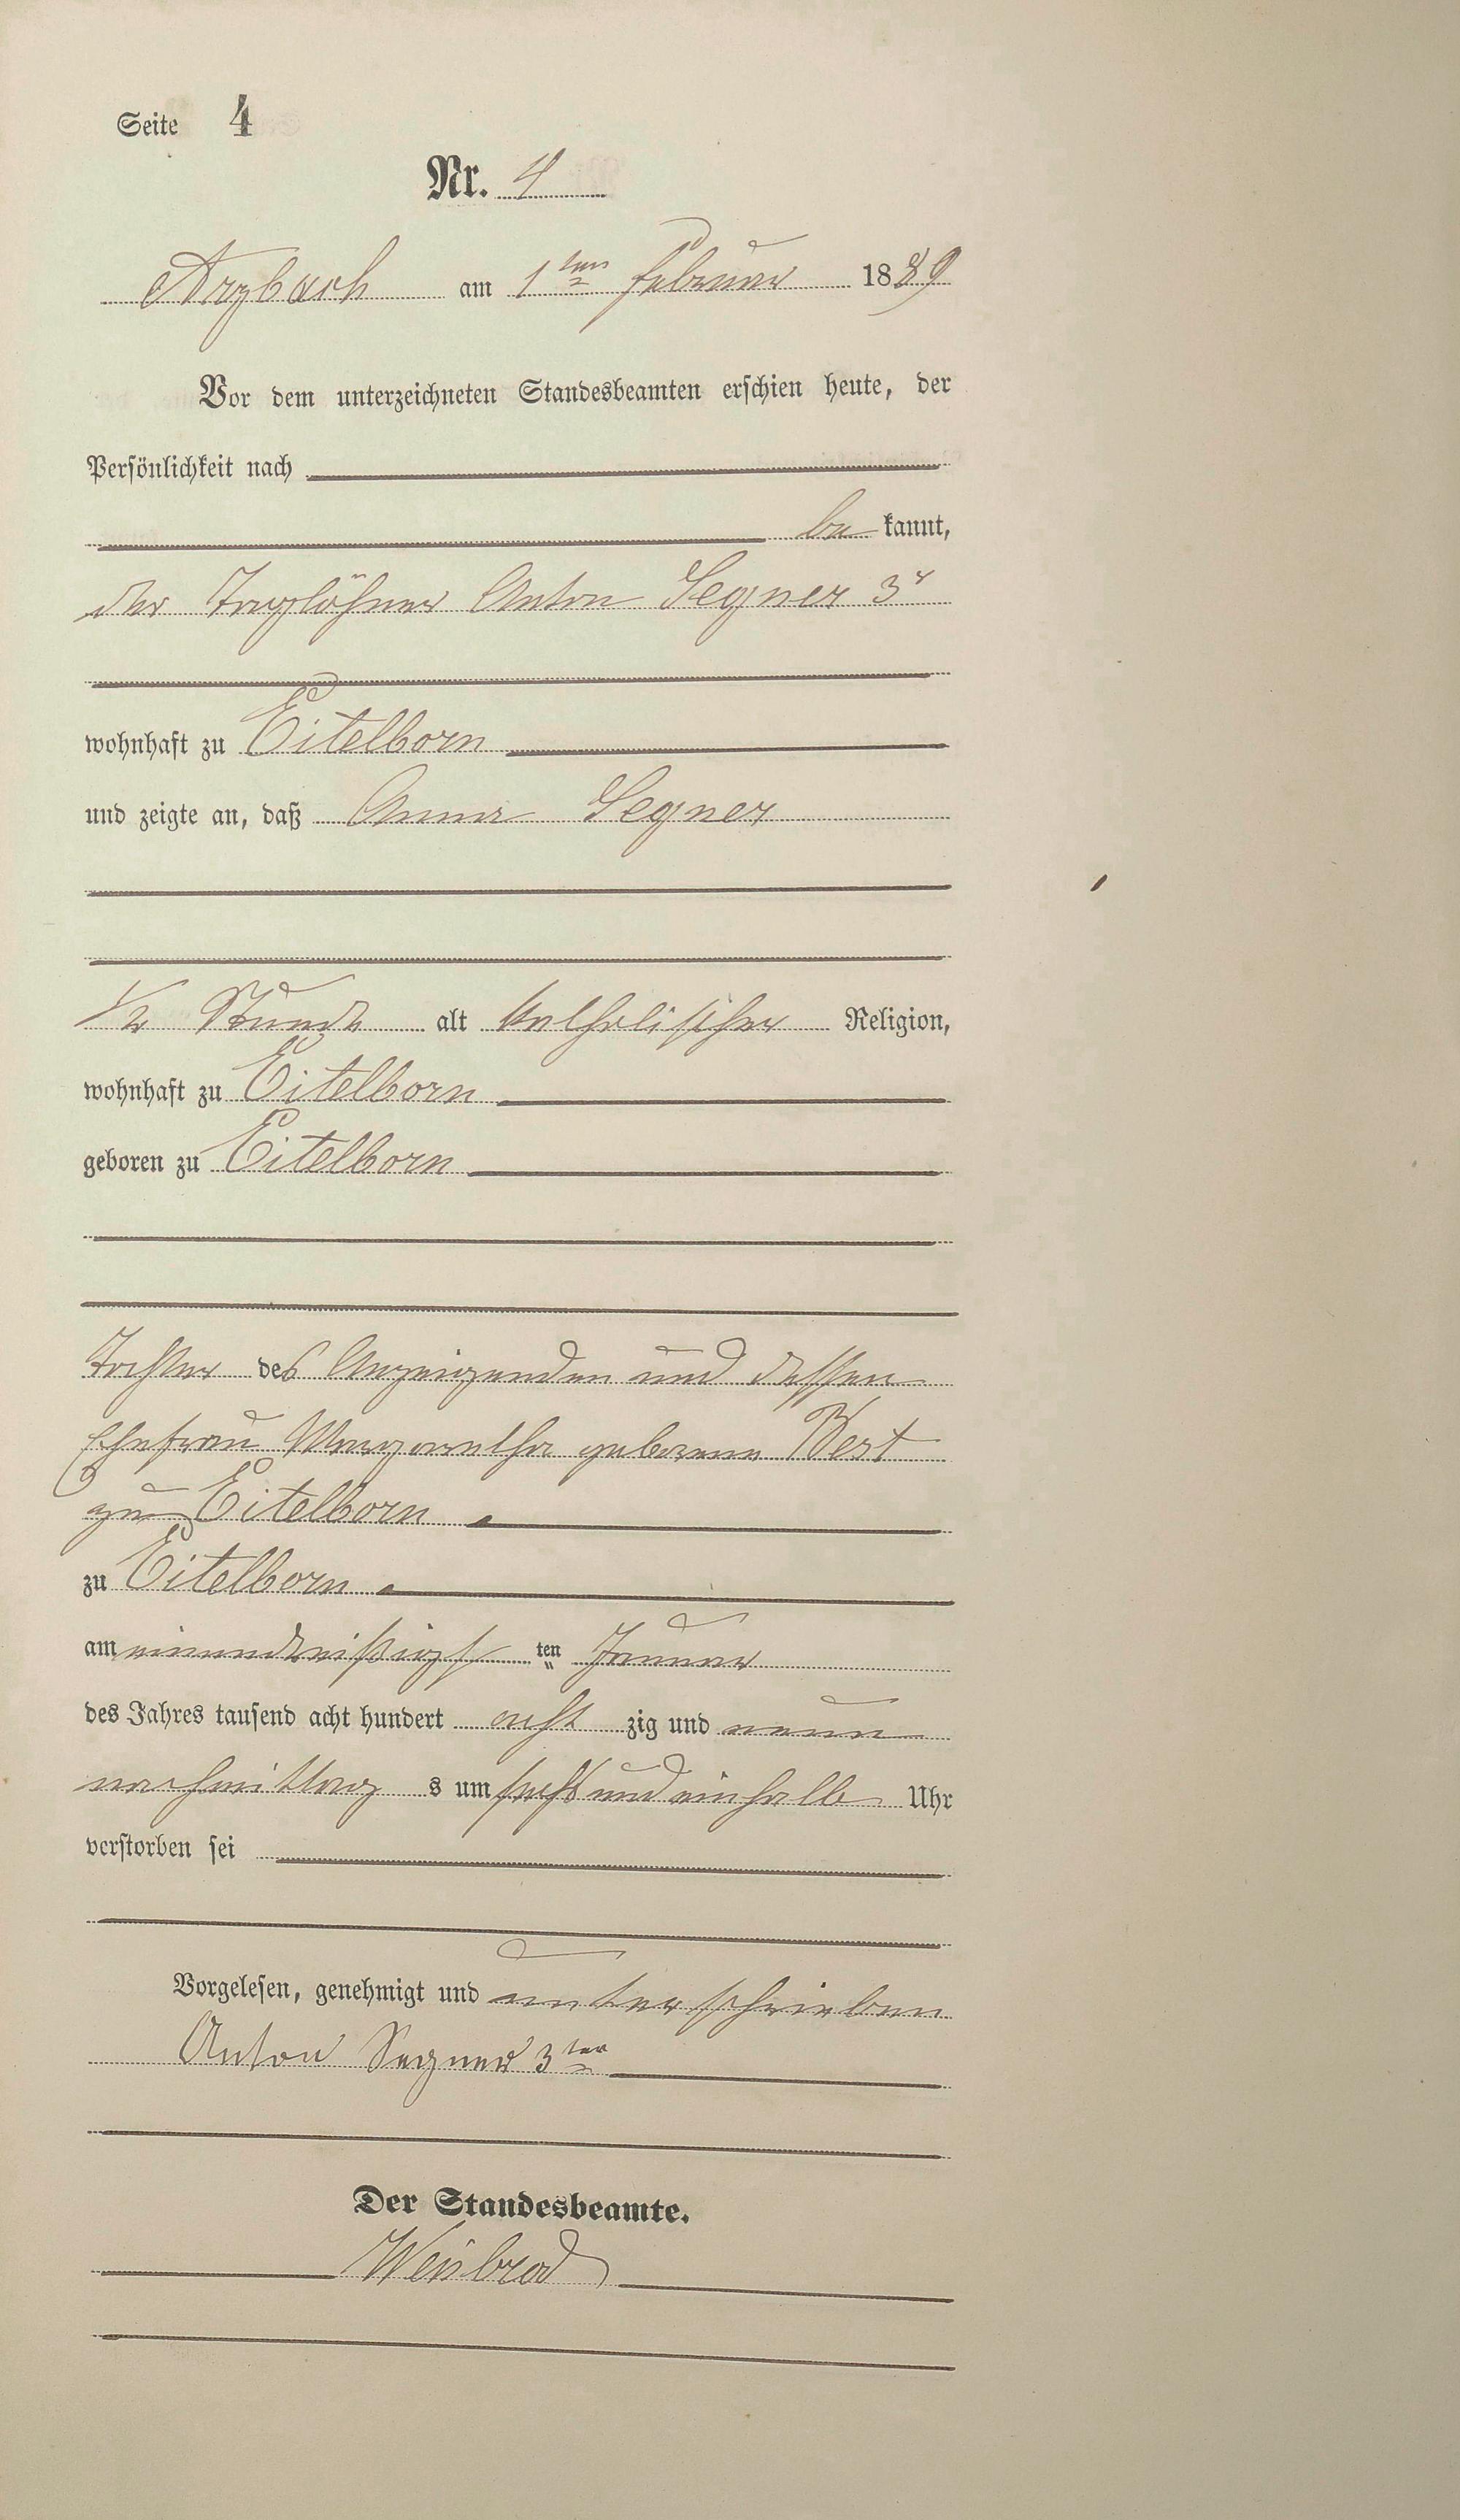 Seite 4
Nr. 4
Arzbach am 1ten Februar 1889
Vor dem unterzeichneten Standesbeamten erschien heute, der
Persönlichkeit nach
be kannt,
der Taglöhner Anton Segner 3r
wohnhaft zu Eitelborn
und zeigte an, daß Anna Segner
1/2 Stunde alt katholischer Religion,
wohnhaft zu Eitelborn
geboren zu Eitelborn
Tochter des Anzeigenden und dessen
Ehefrau Margaretha geborene Best
zu Eitelborn
zu Eitelborn
am einunddreißigs ten Januar
des Jahres tausend acht hundert acht zig und neun
nachmittag s um sechs und einhalb Uhr
verstorben sei
Vorgelesen, genehmigt und unterschrieben
Anton Segner 3ter
Der Standesbeamte.
Weisbrod